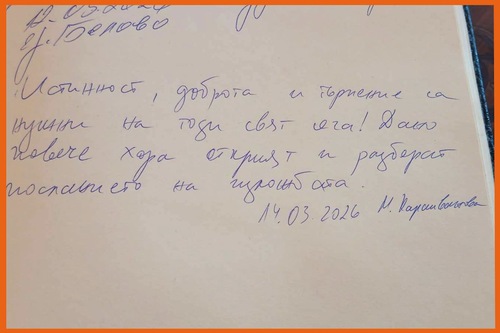 гр. Белово
Истинност, доброта и търпение са
нужни на този свят сега! Дано
повече хора открият и разберат
посланието на изложбата.
14.03.2026 М.